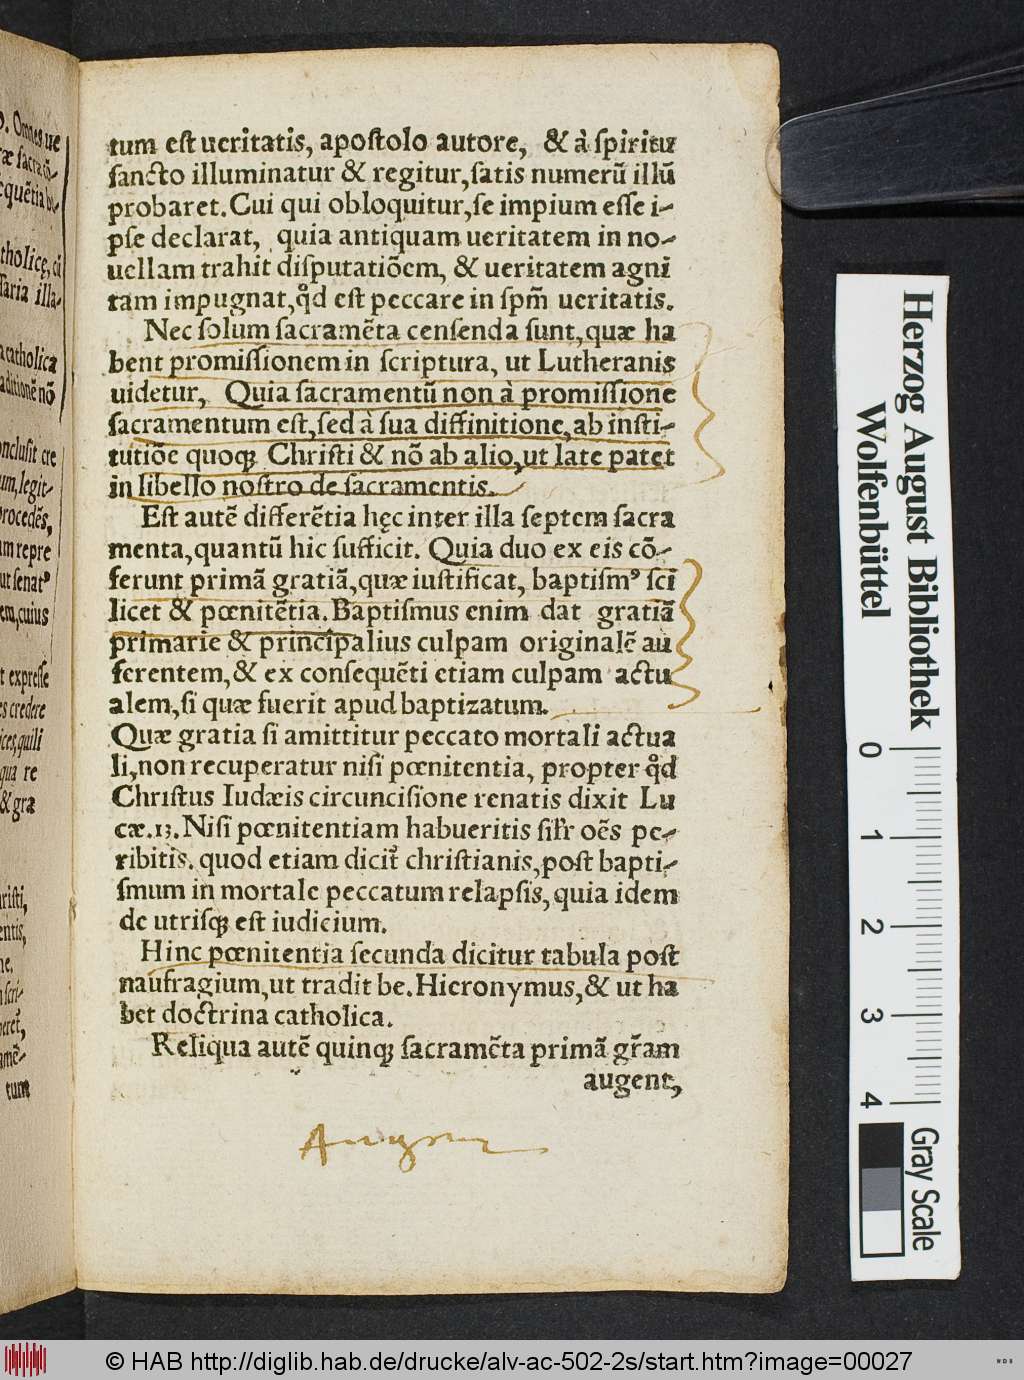 tum est ueritatis, apostolo autore, & à spiritu
sancto illuminatur & regitur, satis numerũ illũ
probaret. Cui qui obloquitur, se impium esse i-
pse declarat, quia antiquam ueritatem in no-
uellam trahit disputatiõem, & ueritatem agni
tam impugnat, qd̉ est peccare in spm̃ ueritatis.
Nec solum sacramẽta censenda sunt, quæ ha
bent promissionem in scriptura, ut Lutheranis
uidetur, Quia sacramentũ non à promissione
sacramentum est, sed à sua diffinitione, ab insti-
tutiõe quoqꝫ Christi & nõ ab alio, ut late patet
in libello nostro de sacramentis.
Est autẽ differẽtia hęc inter illa septem sacra
menta, quantũ hic sufficit. Quia duo ex eis cõ-
ferunt primã gratiã, quæ iustificat, baptismꝰ sci
licet & pœnitẽtia. Baptismus enim dat gratiã
primarie & principalius culpam originalẽ au
ferentem, & ex consequẽti etiam culpam actu
alem, si quæ fuerit apud baptizatum.
Quæ gratia si amittitur peccato mortali actua
li, non recuperatur nisi pœnitentia, propter qd̉
Christus Iudæis circuncisione renatis dixit Lu
cæ. 13. Nisi pœnitentiam habueritis sil̃r oẽs pe-
ribitis. quod etiam dicit̃ christianis, post bapti-
smum in mortale peccatum relapsis, quia idem
de utrisqꝫ est iudicium.
Hinc pœnitentia secunda dicitur tabula post
naufragium, ut tradit be. Hieronymus, & ut ha
bet doctrina catholica.
Reliqua autẽ quinqꝫ sacramẽta primã gr̃am
augent,
Herzog August Bibliothek
Wolfenbüttel
0 1 2 3 4
Gray Scale
© HAB http://diglib.hab.de/drucke/alv-ac-502-2s/start.htm?image=00027